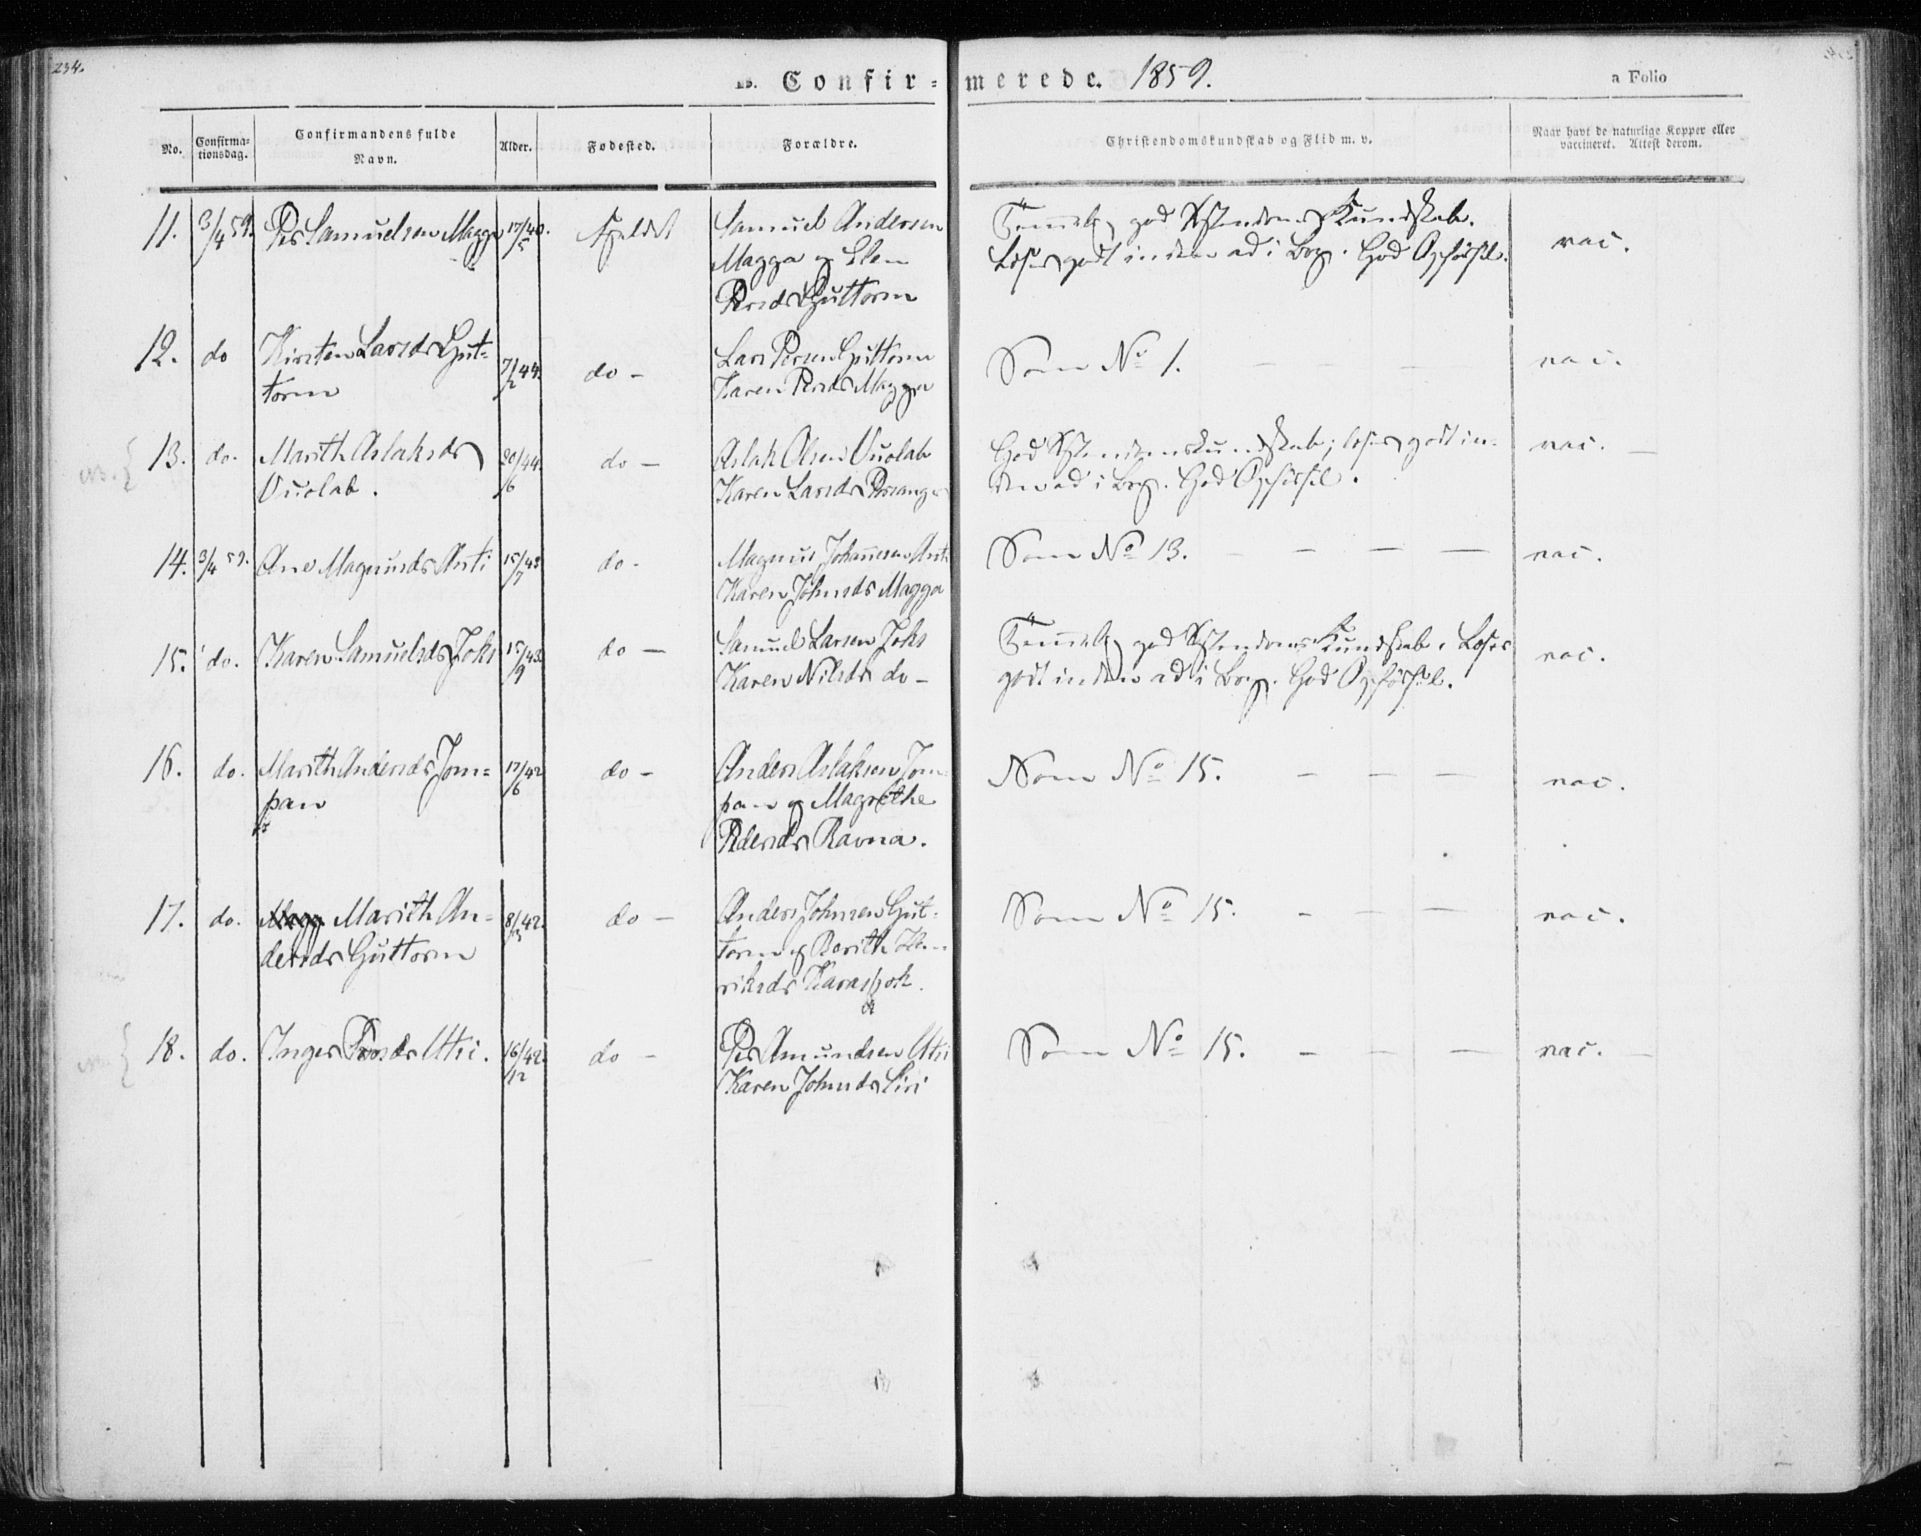 234.
B. Confir=merede. 1859.
a Folio
No.
Confirma-
tionsdag.
Confirmandens fulde
Navn.
Alder.
Fødested.
Forældre.
Christendomskundskab og Flid m. v.
Naar havt de naturlige Kopper eller
vaccineret. Attest derom.
11. 3/4 59. Per Samuelsen Magga 17/5 40. Fjeldet Samuel Andersen
Magga og Elen
Persdr Guttorm
Temmelig god Xstendoms Kundskab.
Læser godt inden ad i Bog. God Opførsel.
vac.
12. do Kirsten Larsdr Gut=
torm
7/2 44. do – Lars Persen Guttorm
Karen Persdr Magga
Som No 1. – – – vac.
13. do. Marith Aslaksdr
Vuolab.
20/6 44. do – Aslak Olsen Vuolab
Karen Larsdr Porsanger
God Xstendomskundskab; læser godt in-
den ad i Bog. God Opførsel.
vac. –
14. 3/4 59. Ane Magnusdr Anti 15/7 43 do. Magnus Johannesen Anti
Karen Johnsdr Magga
Som No 13. – – – – vac.
15. do. Karen Samuelsdr Joks 15/9 43. do – Samuel Larsen Joks
Karen Nilsdr do –
Temmelig god Xstendoms Kundskab. Læser
godt inden ad i Bog. God Opførsel.
vac.
16. do. Marith Andersdr Jom=
pan
17/6 42 do – Anders Aslaksen Jom-
pan og Magrethe
Pedersdr Ravna.
Som No 15. – – – vac.
17. do. Magg Marith An-
dersdr Guttorm
8/5 42. do – Anders Johnsen Gut-
torm og Berith Hen-
riksdr Karasjok.
Som No 15. – – – vac.
18. do. Inger Persdr Utsi. 16/12 42. do – Per Amundsen Utsi
Karen Johnsdr Siri
Som No 15. – – – vac. –